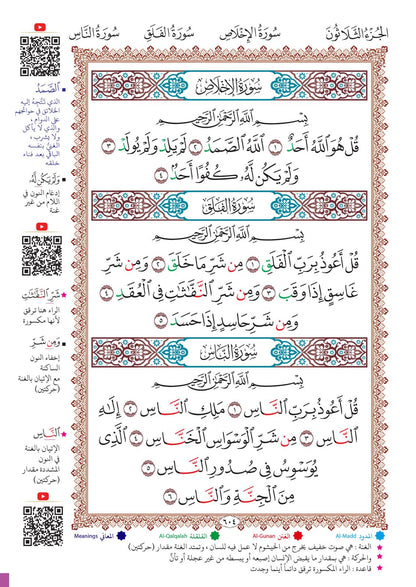 الجُزءُ الثَّلَاثُونَ سُورَةُ الإِخْلَاصِ سُورَةُ الفَلَقِ سُورَةُ النَّاسِ
سُورَةُ الإِخْلَاصِ
بِسْمِ اللَّهِ الرَّحْمَٰنِ الرَّحِيمِ
قُلْ هُوَ ٱللَّهُ أَحَدٌ ١ ٱللَّهُ ٱلصَّمَدُ ٢ لَمْ يَلِدْ وَلَمْ يُولَدْ ٣
وَلَمْ يَكُن لَّهُۥ كُفُوًا أَحَدٌۢ ٤
سُورَةُ الفَلَقِ
بِسْمِ اللَّهِ الرَّحْمَٰنِ الرَّحِيمِ
قُلْ أَعُوذُ بِرَبِّ ٱلْفَلَقِ ١ مِن شَرِّ مَا خَلَقَ ٢ وَمِن شَرِّ
غَاسِقٍ إِذَا وَقَبَ ٣ وَمِن شَرِّ ٱلنَّفَّٰثَٰتِ فِى ٱلْعُقَدِ ٤
وَمِن شَرِّ حَاسِدٍ إِذَا حَسَدَ ٥
سُورَةُ النَّاسِ
بِسْمِ اللَّهِ الرَّحْمَٰنِ الرَّحِيمِ
قُلْ أَعُوذُ بِرَبِّ ٱلنَّاسِ ١ مَلِكِ ٱلنَّاسِ ٢ إِلَٰهِ
ٱلنَّاسِ ٣ مِن شَرِّ ٱلْوَسْوَاسِ ٱلْخَنَّاسِ ٤ ٱلَّذِى
يُوَسْوِسُ فِى صُدُورِ ٱلنَّاسِ ٥
مِنَ ٱلْجِنَّةِ وَٱلنَّاسِ ٦
٦٠٤
ٱلصَّمَدُ
الذي تتجه إليه
الخلائق في حوائجهم
على الدوام،
والذي لا يأكل
ولا يشرب،
الغني بنفسه
الباقي بعد فناء
خلقه
وَلَمْ يَكُن لَّهُ
إدغام النون في
اللام من غير
غنة
شَرِّ ٱلنَّفَّٰثَٰتِ
الراء هنا ترقق
لأنها مكسورة
وَمِن شَرِّ
إخفاء النون
الساكنة
مع الإتيان بالغنة
(حركتين)
ٱلنَّاسِ
الإتيان بالغنة
في النون
المشددة مقدار
(حركتين)
المدود Al-Madd الغنن Al-Gunan القلقلة Al-Qalqalah المعاني Meanings
الغنة : هي صوت خفيف يخرج من الخيشوم لا عمل فيه للسان، وتمتد الغنة مقدار (حركتين)
والحركة : هي بمقدار ما يقبض الإنسان إصبعه أو يبسطه من غير عجلة أو تأنٍّ
قاعدة : الراء المكسورة ترقق دائماً أينما وجدت